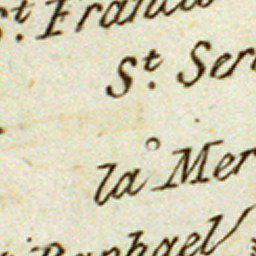 St. Franci
St. Ser
la Mer
Raphael